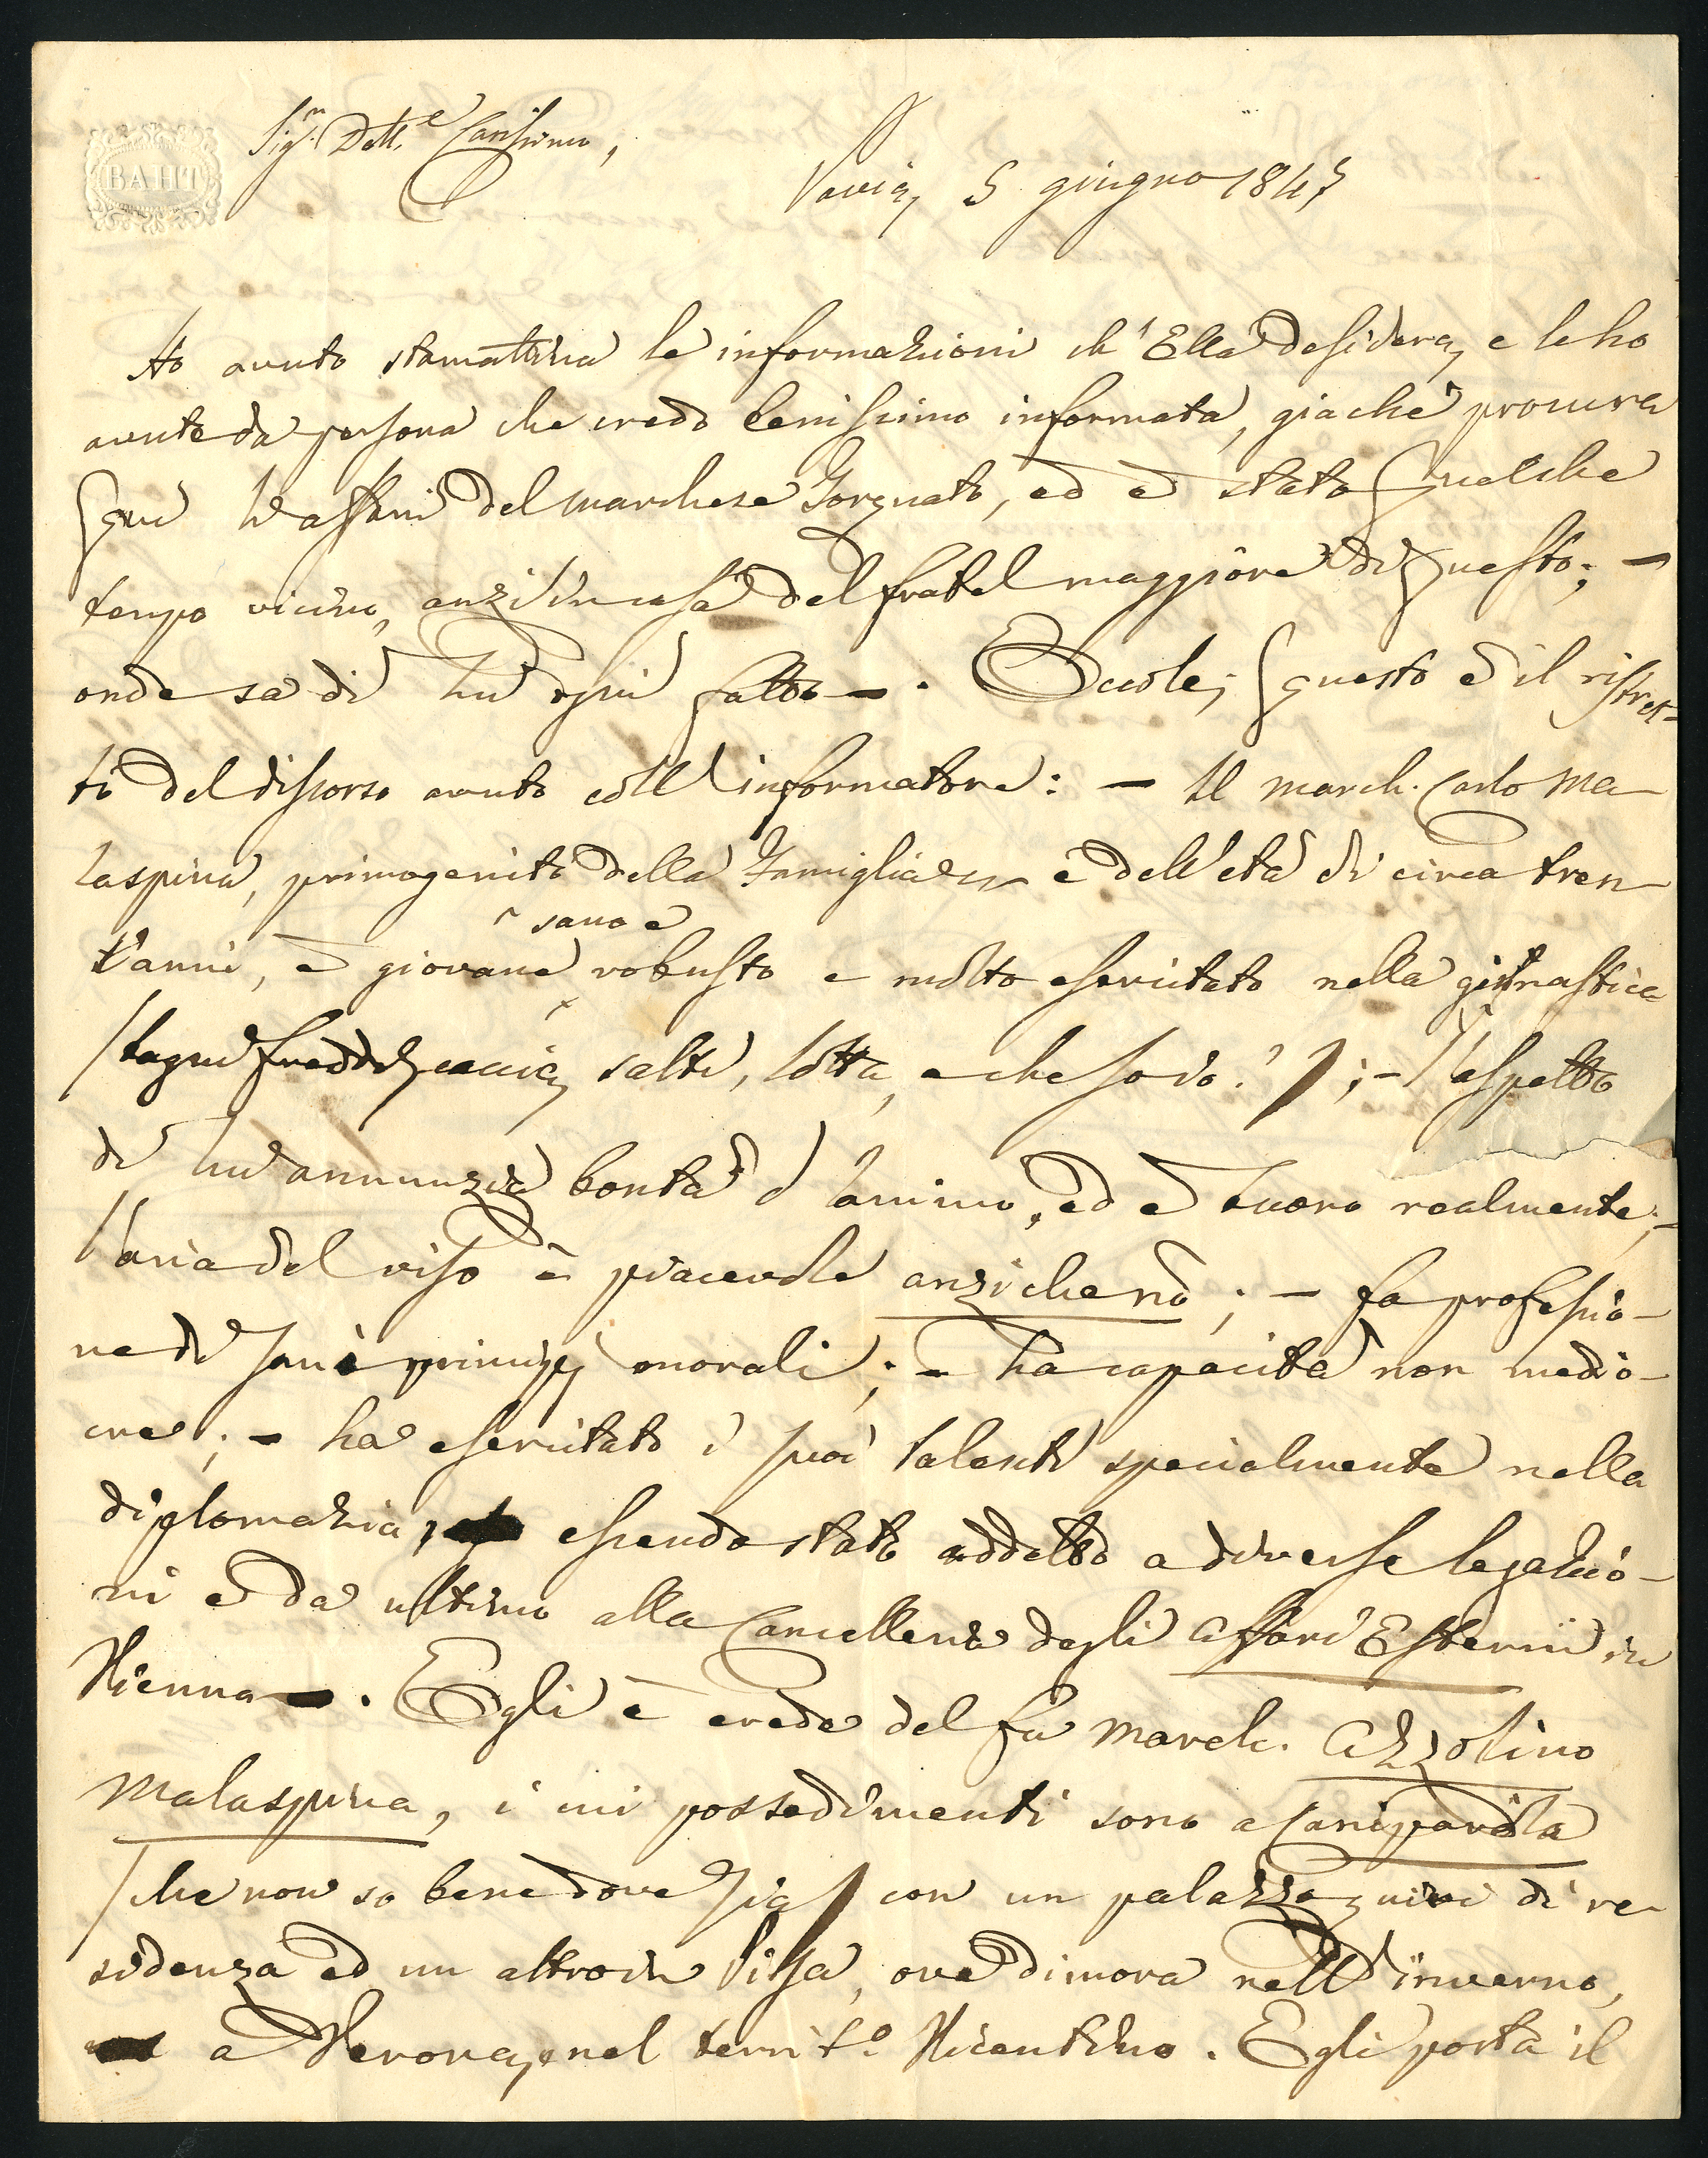 BATH
Sig.r Dott.e Carissimo,
Pavia, 5 giugno 1847
Ho avuto stamattina le informazioni ch'Ella desidera, e le ho
avute da persona che credo benissimo informata, giacchè procura
qui gli affari del marchese Torquato, ed è stato qualche
tempo vicino, anzi in casa del fratel maggiore di questo; —
onde sa di lui ogni fatto —. Eccole; questo è il ristret-
to del discorso avuto coll'informatore: — Il march. Carlo Ma-
laspina, primogenito della Famiglia è dell'età di circa tren-
t'anni, è giovane sano e robusto e molto esercitato nella ginnastica
(bagni freddi, caccia, salti, lotta, e che so io?); — l'aspetto
di lui annunzia bontà d'animo, ed è buono realmente; —
l'aria del viso è piacevole anzichenò; — fa professio-
ne di sani principj morali; — ha capacità non medio-
cre; — ha esercitato i suoi talenti specialmente nella
diplomazia, essendo stato addetto a diverse legazio-
ni e da ultimo alla Cancelleria degli Affari Esterni in
Vienna —. Egli è erede del fu march. Azzolino
Malaspina, i cui possedimenti sono a Caniparola
(che non so bene dove sia) con un palazzo quivi di re-
sidenza ed un altro in Pisa, ove dimora nell'inverno,
a Verona, e nel territ.o Vicentino. Egli porta il